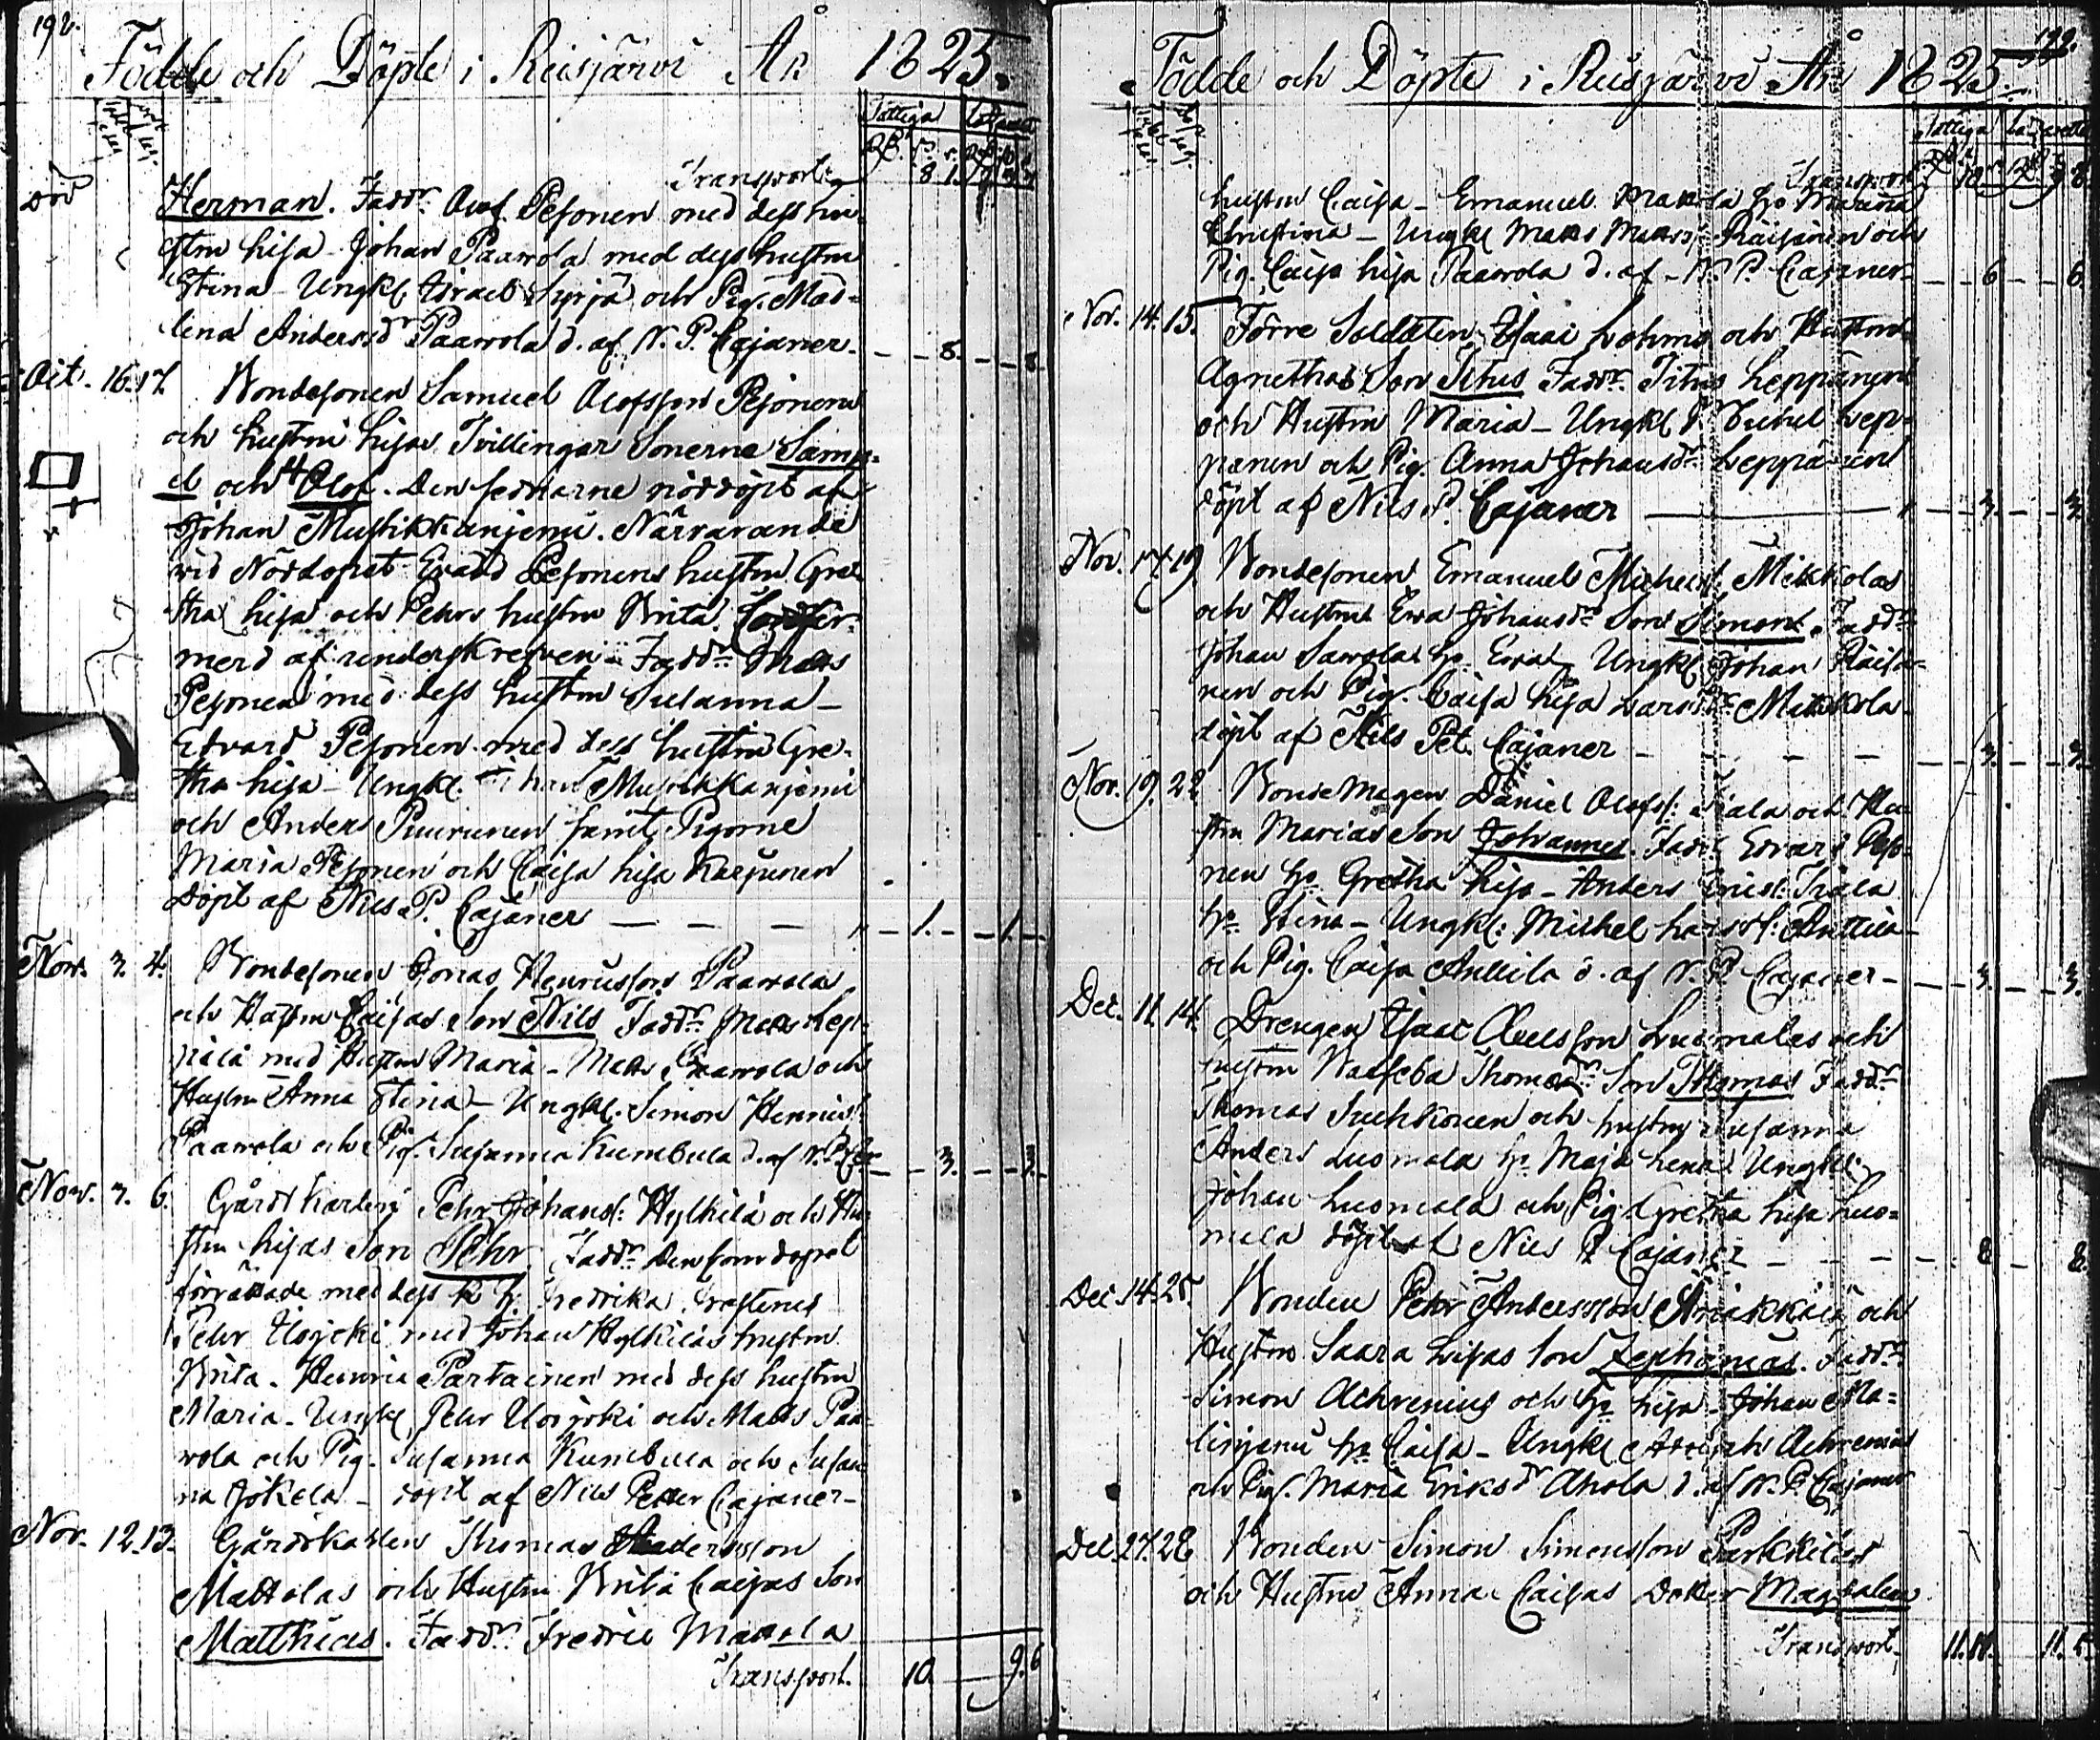 192.
Födde och Döpte i Reisjärvi År 1825.
Fattiga Lazarett
Transport 8.1.
död
Herman. Fadd:r Olof Pesonen med dess hu-
strn Lisa Johan Paawola med dess hustru
Stina Ungkl. Israel Syrjä och Pig. Mad-
lena Andersd:r Paawola d. af N. P. Cajaner. 8. 8
Oct. 16. 17. Bondesonen Samuel Olofsson Pesonens
och hustru Lisas Tvillingar Sönerne Samu-
el och Olof. Den sednarne nöddöpt af
Johan Mustikkanjemi. Närvarande
vid Nöddopet Evard Pesonens hustru Gre-
tha Lisa och Pehrs hustru Brita. Confir-
merd af underskrefven. Fadd:r Matts
Pesonen med dess hustru Susanna
Edvard Pesonen med dess hustru Gre-
tha Lisa Ungkl. Johan Mustikkanjemi
och Anders Puurunen samt Pigorne
Maria Pesonen och Caisa Lisa Karjunen
Döpt af Nils P. Cajaner 1. 1.
Nov. 3. 4. Bondesonen Jonas Henricsson Paawola
och Hustru Caisas Son Nils Fadd:r Matts Lep-
pälä med Hustru Maria Matts Paawola och
Hustru Anna Stina Ungkl. Simon Henricss.
Paawola och Pig. Susanna Kumbula d. af N. P. Cajr 3. 3.
Nov. 3. 6. Gårdskarlen Pehr Johans: Hylkilä och Hu-
stru Lisas Son Pehr Fadd:r Den som dopet
förrättade med dess K. H. Fredrika
Pehr Uosjoki med Johan Hylkiläs hustru
Brita. Henric Partainen med dess hustru
Maria. Ungkl. Pehr Uosjoki och Matts Paa-
wola och Pig. Susanna Kumbula och Susan-
na Jokela döpt af Nils Petter Cajaner
Nov. 12. 13. Gårdskarlen Thomas Andersson
Mattolas och Hustru Brita Caisas Son
Matthias. Fadd:r Fredric Mattola
Transport. 10. 9.6
199.
Födde och Döpte i Reisjärvi År 1825.
Fattiga Lazarett
Transport 10
hustru Caisa Emanuel Mattola H:o Maria
Christina Ungkl Matts Mattss. Räisänen och
Pig. Caisa Lisa Paawola d. af N. P. Cajaner 6 6
Nov. 14. 15. Förre Soldaten Isaac Lohms och Hustru
Agnethas Son Titus Fadd:r Titus Leppänen
och Hustru Maria Ungkl. Michel Lep-
pänen och Pig. Anna Johansd:r Leppänen
döpt af Nils P. Cajaner 3. 3.
Nov. 17. 19. Bondesonen Emanuel Michels. Mikkolas
och Hustru Ewa Johansd:r Son Simon. Fadd:r
Johan Sawola H:o Ewa Ungkl. Johan Räisä-
nen och Pig. Caisa Lisa Larsd:r Mikkola
döpt af Nils Pet. Cajaner 3. 3.
Nov. 19. 22. Bonde Mågen Daniel Olofss: Kiala och Hu-
stru Marias Son Johannes. Fadd. Edvard Peso-
nen H:o Gretha Lisa Anders Erics: Kiala
H:o Stina Ungkl: Michel Larss: Anttila
och Pig. Caisa Anttila d. af N. P. Cajaner 3. 3.
Dec. 11. 14. Drengen Isaac Axelsson Luomalas och
hustru Walfeba Thomasd:r Son Thomas Fadd:r
Thomas Suhkonen och hustru Susanna
Anders Luomala H:o Maja Lena Ungkl:
Johan Luomala och Pig. Gretha Lisa Luo-
mala döpt af Nils P. Cajaner 8 8.
Dec. 14. 25. Bonden Pehr Andersson Kniukkälä och
Hustru Saara Lisas Son Zephanias. Fadd:r
Simon Achrenius och H:o Lisa Johan Ma-
linjemi H:o Caisa Ungkl Achrenius
och Pig. Maria Eriksd:r Ahola d. af N. P. Cajaner
Dec. 27. 28. Bonden Simon Simonsson Parkkilas
och Hustru Anna Caisas Dotter Magdalena
Transport. 11. 11.